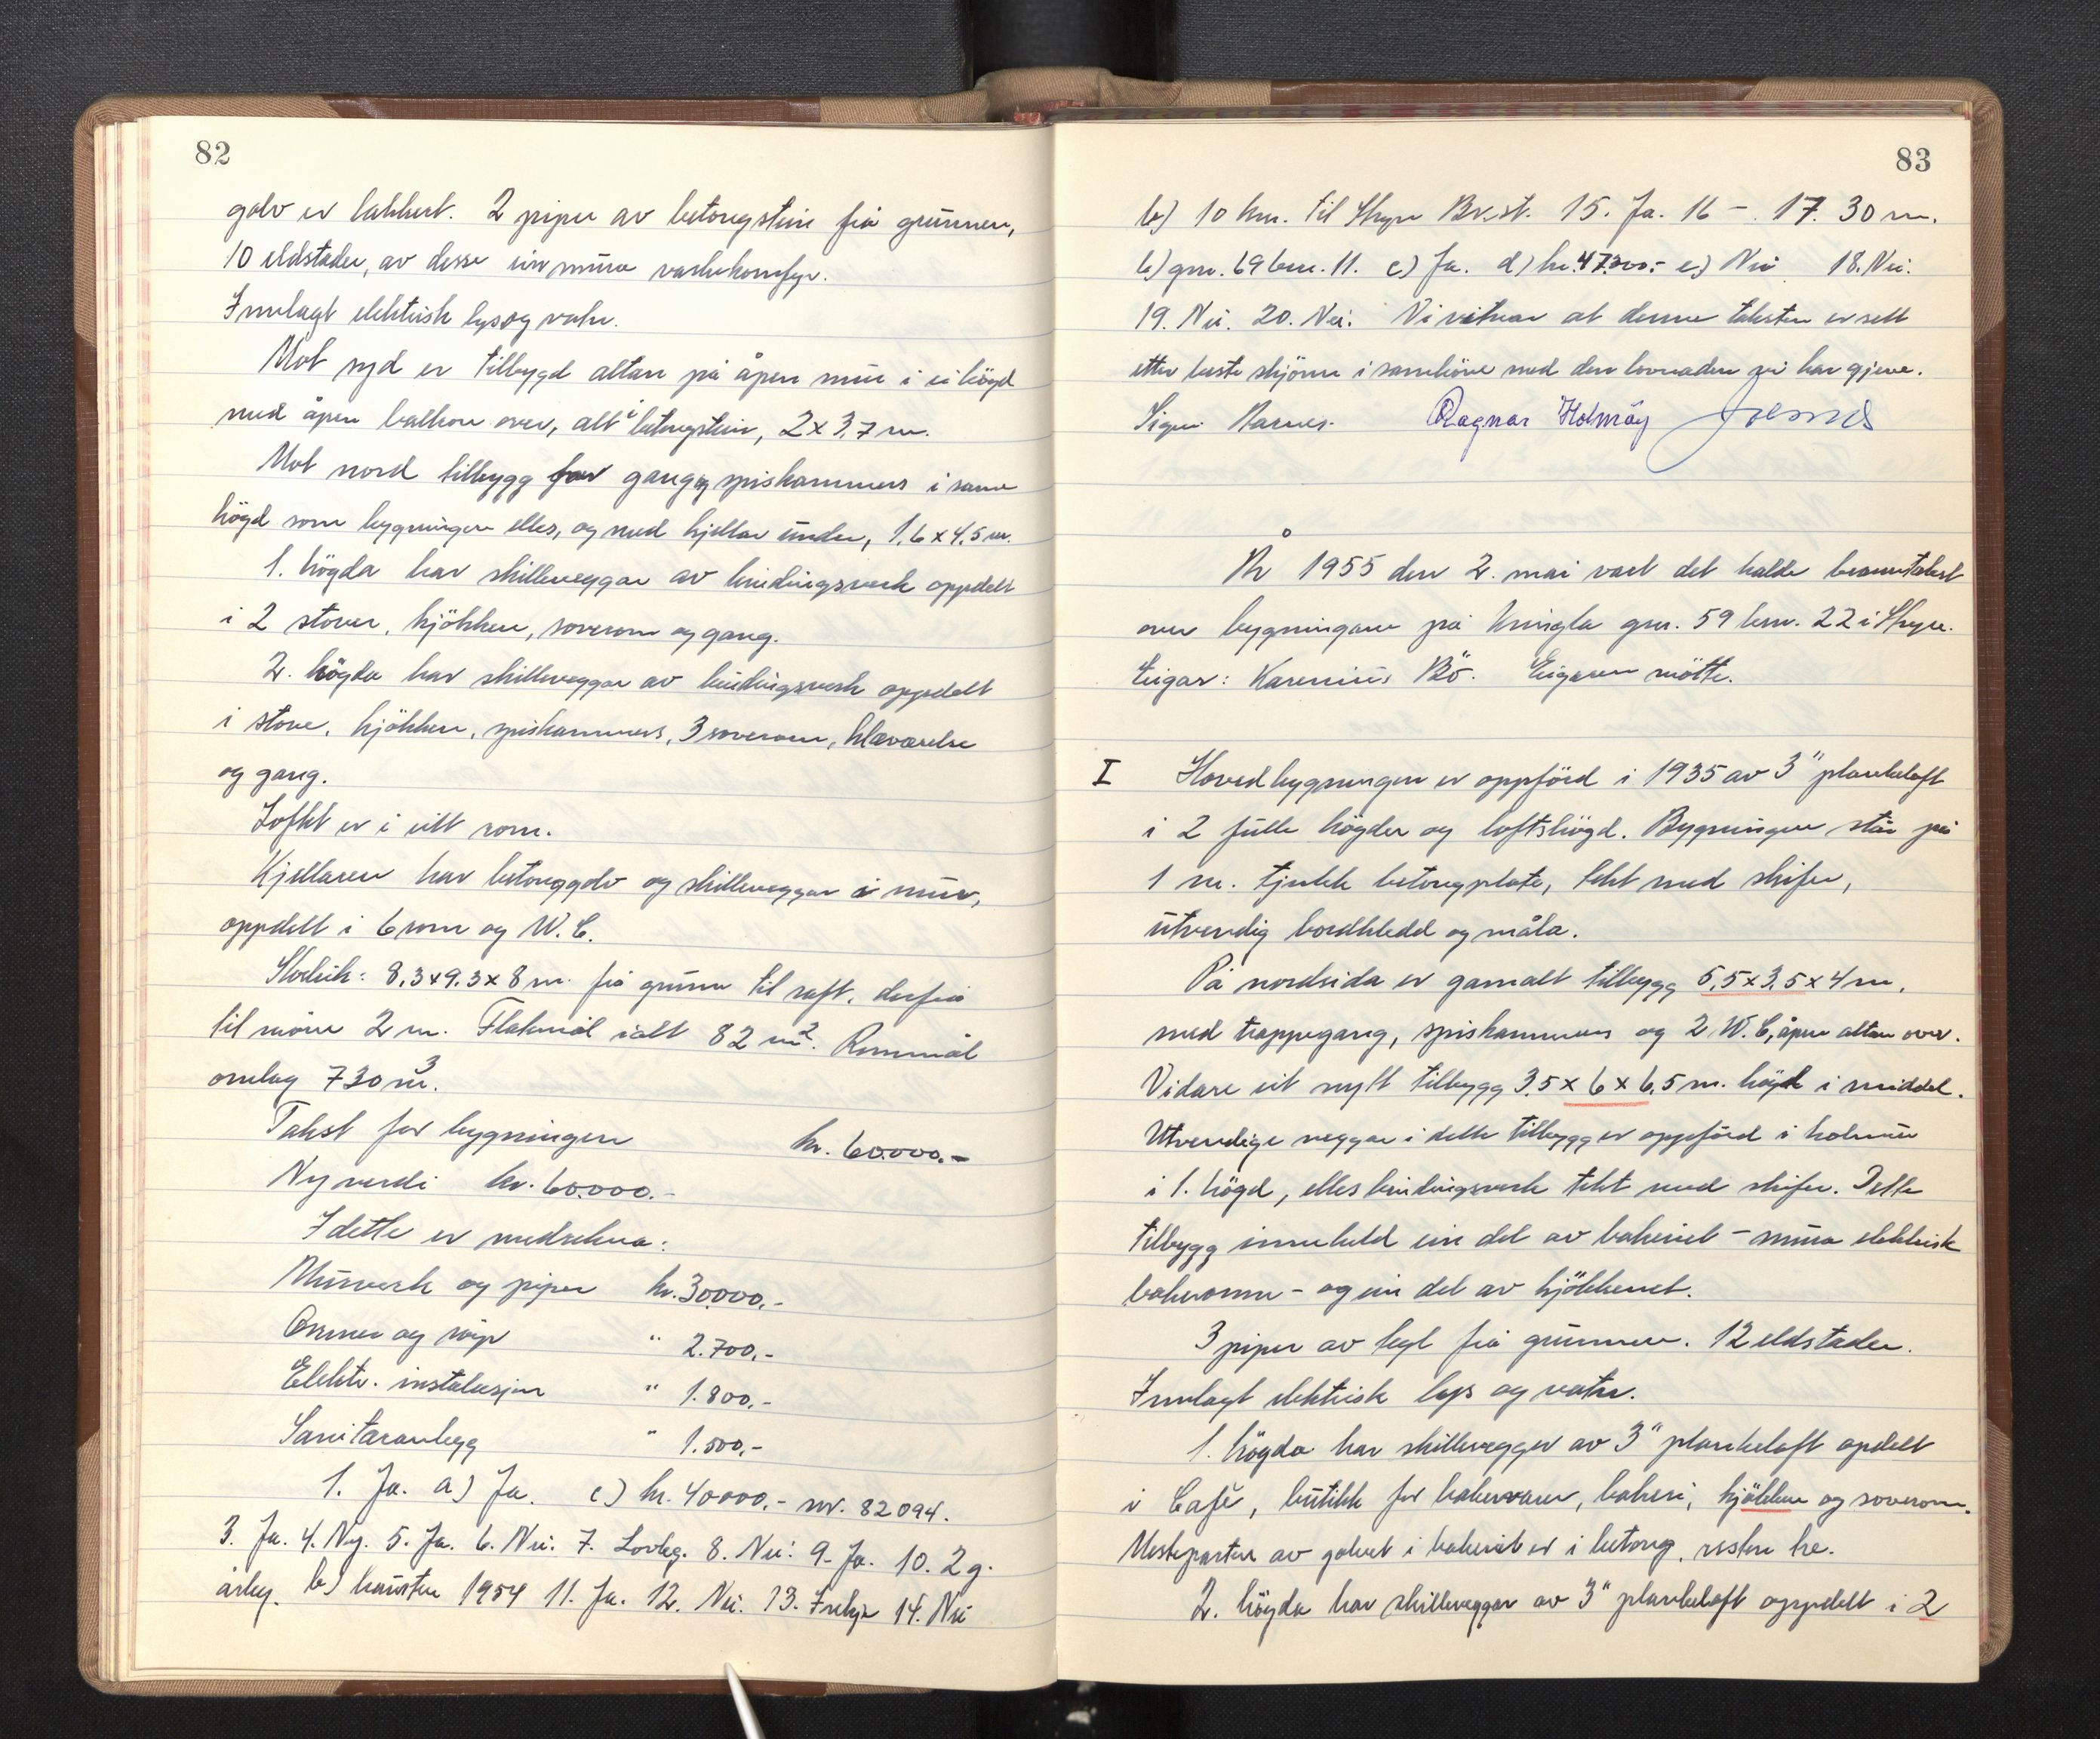 82
golv er lakkert. 2 piper av betongstein frå grunnen,
10 eldstader, av desse ein mura vaskekomfyr.
Innlagt elektrisk lys og vatn.
Mot syd er tilbygd altan på åpen mur i ei högd
med åpen balkon over, alt i betongstein, 2 x 3,7 m.
Mot nord tilbygg for gang og spiskammers i same
högd som bygningen elles, og med kjellar under, 1,6 x 4,5 m.
1. högda har skilleveggar av bindingsverk oppdelt
i 2 stover, kjökken, soverom og gang.
2. högda har skilleveggar av bindingsverk oppdelt
i stove, kjökken, spiskammers, 3 soverom, kleværelse
og gang.
Loftet er i eitt rom.
Kjellaren har betonggolv og skilleveggar i mur,
oppdelt i 6 rom og W.C.
Storleik: 8,3 x 9,3 x 8 m. frå grunn til raft, derfrå
til möne 2 m. Flatemål ialt 82 m². Rommål
omlag 730 m³.
Takst for bygningen kr. 60.000.-
Nyverdi kr. 60.000.-
I dette er medrekna:
Murverk og piper kr. 30.000,-
Omner og rör " 2.700,-
Elektr. instalasjon " 1.800,-
Sanitæranlegg " 1.500,-
1. Ja. a) Ja. c) kr. 40000,- nr. 82094.
3. Ja. 4. Ny. 5. Ja. 6. Nei. 7. Lovleg. 8. Nei. 9. Ja. 10. 2 g.
årleg. b) hausten 1954 11. Ja. 12. Nei. 13. Inkje 14. Nei
83
b) 10 km. til Stryn Br.st. 15. Ja. 16 -. 17. 30 m.
b) gnr. 69 bnr. 11. c) Ja. d) kr. 47.200.- e) Nei 18. Nei.
19. Nei. 20. Nei. Vi vitnar at denne taksten er sett
etter beste skjönn i samhöve med den lovnaden vi har gjeve.
Sigm. Ragnar Holmöy
År 1955 den 2. mai vart det halde branntakst
over bygningane på Kringla gnr. 59 bnr. 22 i Stryn.
Eigar: Karenius Bö. Eigaren mötte.
I Hovedbygningen er oppförd i 1935 av 3" plankelaft
i 2 fulle högder og loftshögd. Bygningen står på
1 m. tjukk betongplate, tekt med skifer,
utvendig bordkledd og måla.
På nordsida er gamalt tilbygg 5,5 x 3,5 x 4 m,
med trappegang, spiskammers og 2 W.C, åpen altan over.
Vidare eit nytt tilbygg 3,5 x 6 x 6,5 m. högd i middel.
Utvendige veggar i dette tilbygg er oppförd i holmur
i 1. högd, elles bindingsverk tekt med skifer. Dette
tilbygg inneheld ein del av bakeriet - mura elektrisk
bakeromn - og ein del av kjökkenet.
3 piper av tegl frå grunnen. 12 eldstader.
Innlagt elektrisk lys og vatn.
1. högda har skillevegger av 3" plankelaft opdelt
i Café, butikk for bakervarer, bakeri, kjökken og soverom.
Mesteparten av golvet i bakeriet er i betong, resten tre.
2. högda har skilleveggar av 3" plankelaft oppdelt i 2